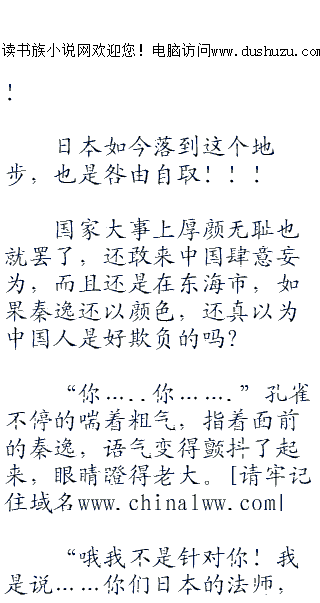 读书族小说网欢迎您！电脑访问www.dushuzu.com
！
日本如今落到这个地
步，也是咎由自取！！！
国家大事上厚颜无耻也
就罢了，还敢来中国肆意妄
为，而且还是在东海市，如
果秦逸还以颜色，还真以为
中国人是好欺负的吗？
“你…..你…….”孔雀
不停的喘着粗气，指着面前
的秦逸，语气变得颤抖了起
来，眼睛瞪得老大。[请牢记
住域名www.china1ww.com|
“哦我不是针对你！我
是说……你们日本的法师，